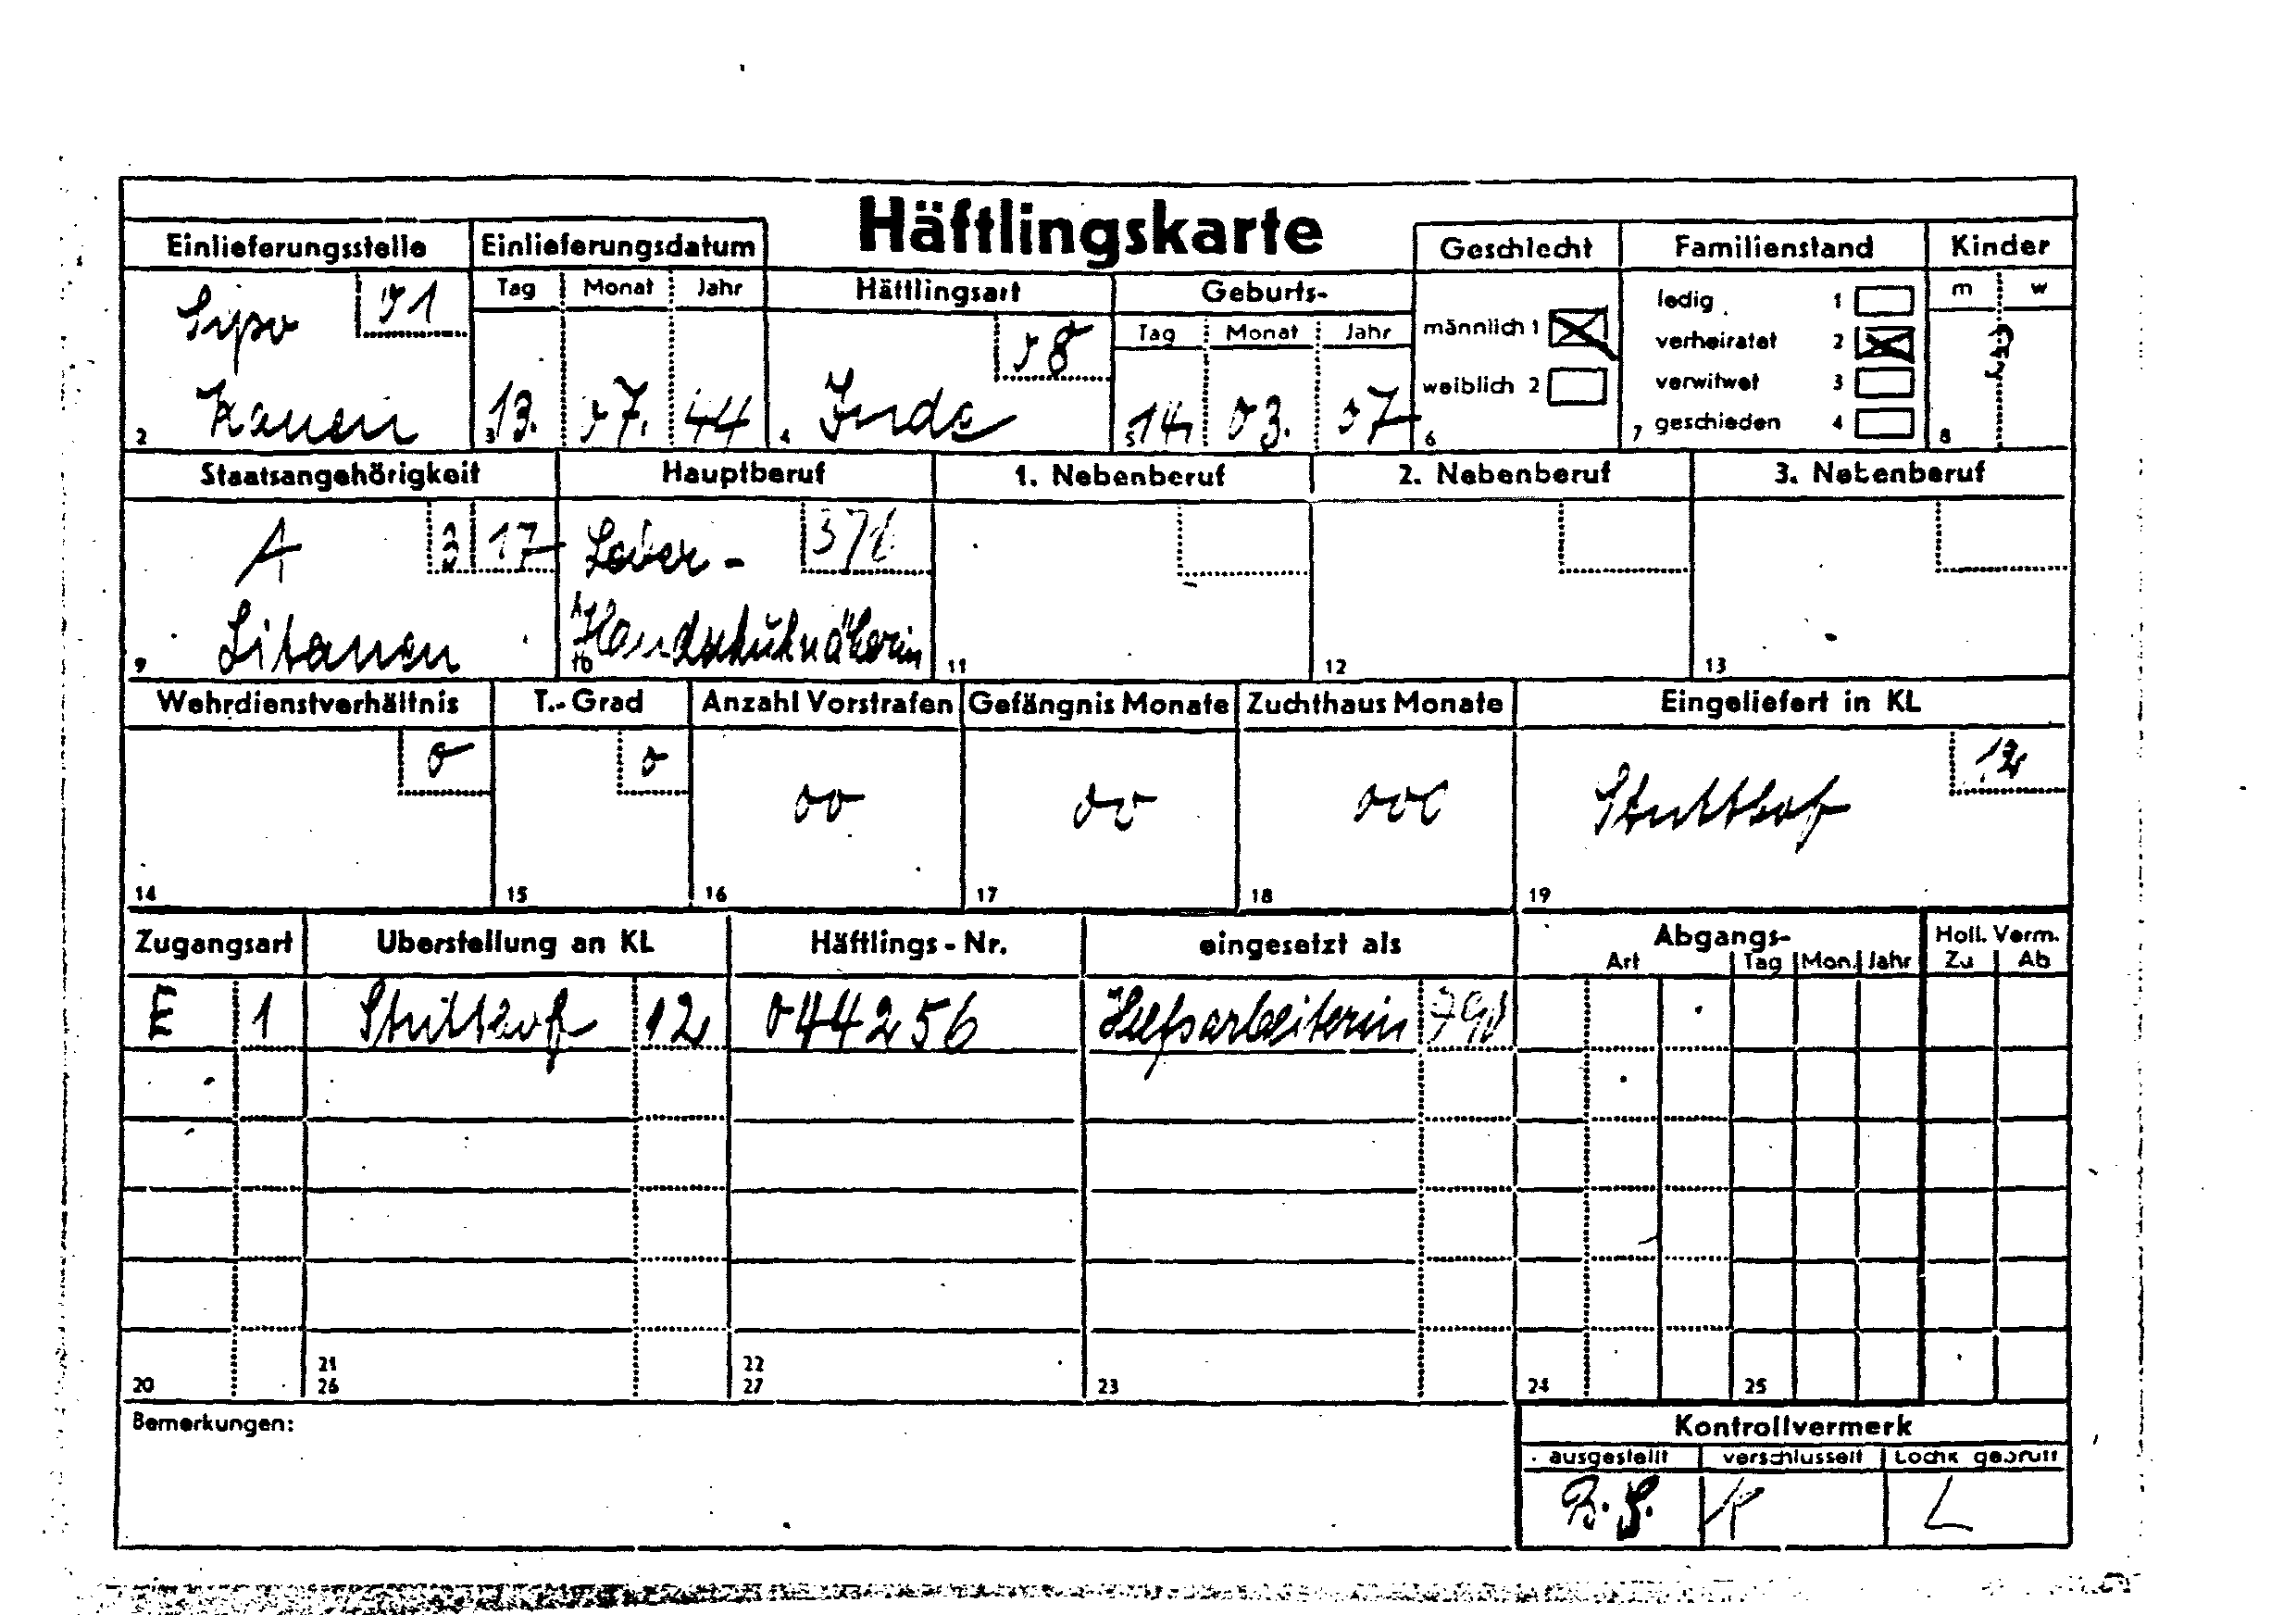 Häftlingskarte
Einlieferungsstelle
Sipo 51
Kauen
2
Einlieferungsdatum
Tag Monat Jahr
13. 07. 44
3
Häftlingsart
58
Jude
4
Geburts-
Tag Monat Jahr
14 03. 07
5
Geschlecht
männlich 1
weiblich 2
6
Familienstand
ledig 1
verheiratet 2
verwitwet 3
geschieden 4
7
Kinder
m w
?
8
Staatsangehörigkeit
A 3 17
Litauen
9
Hauptberuf
Leder-
Handschuhnäherin
10
1. Nebenberuf
11
2. Nebenberuf
12
3. Nebenberuf
13
Wehrdienstverhältnis
0
14
T.-Grad
0
15
Anzahl Vorstrafen
00
16
Gefängnis Monate
00
17
Zuchthaus Monate
000
18
Eingeliefert in KL
12
Stutthof
19
Zugangsart Uberstellung an KL Häftlings-Nr. eingesetzt als
Abgangs-
Art Tag Mon. Jahr
Holl. Verm.
Zu Ab
E 1 Stutthof 12 044256 Hilfsarbeiterin
21 22
20 26 27 23 24 25
Bemerkungen:
Kontrollvermerk
ausgestellt verschlüsselt Lochk geprüft
B. S. K L